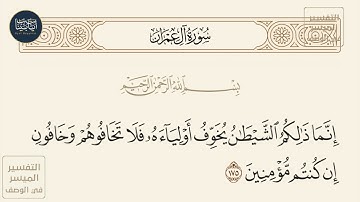 سُورَةُ آلِ عِمْرَانَ
بِسْمِ اللَّهِ الرَّحْمَٰنِ الرَّحِيمِ
إِنَّمَا ذَٰلِكُمُ ٱلشَّيْطَٰنُ يُخَوِّفُ أَوْلِيَآءَهُۥ فَلَا تَخَافُوهُمْ وَخَافُونِ
إِن كُنتُم مُّؤْمِنِينَ ١٧٥
التفسير
الميسر
في الوصف